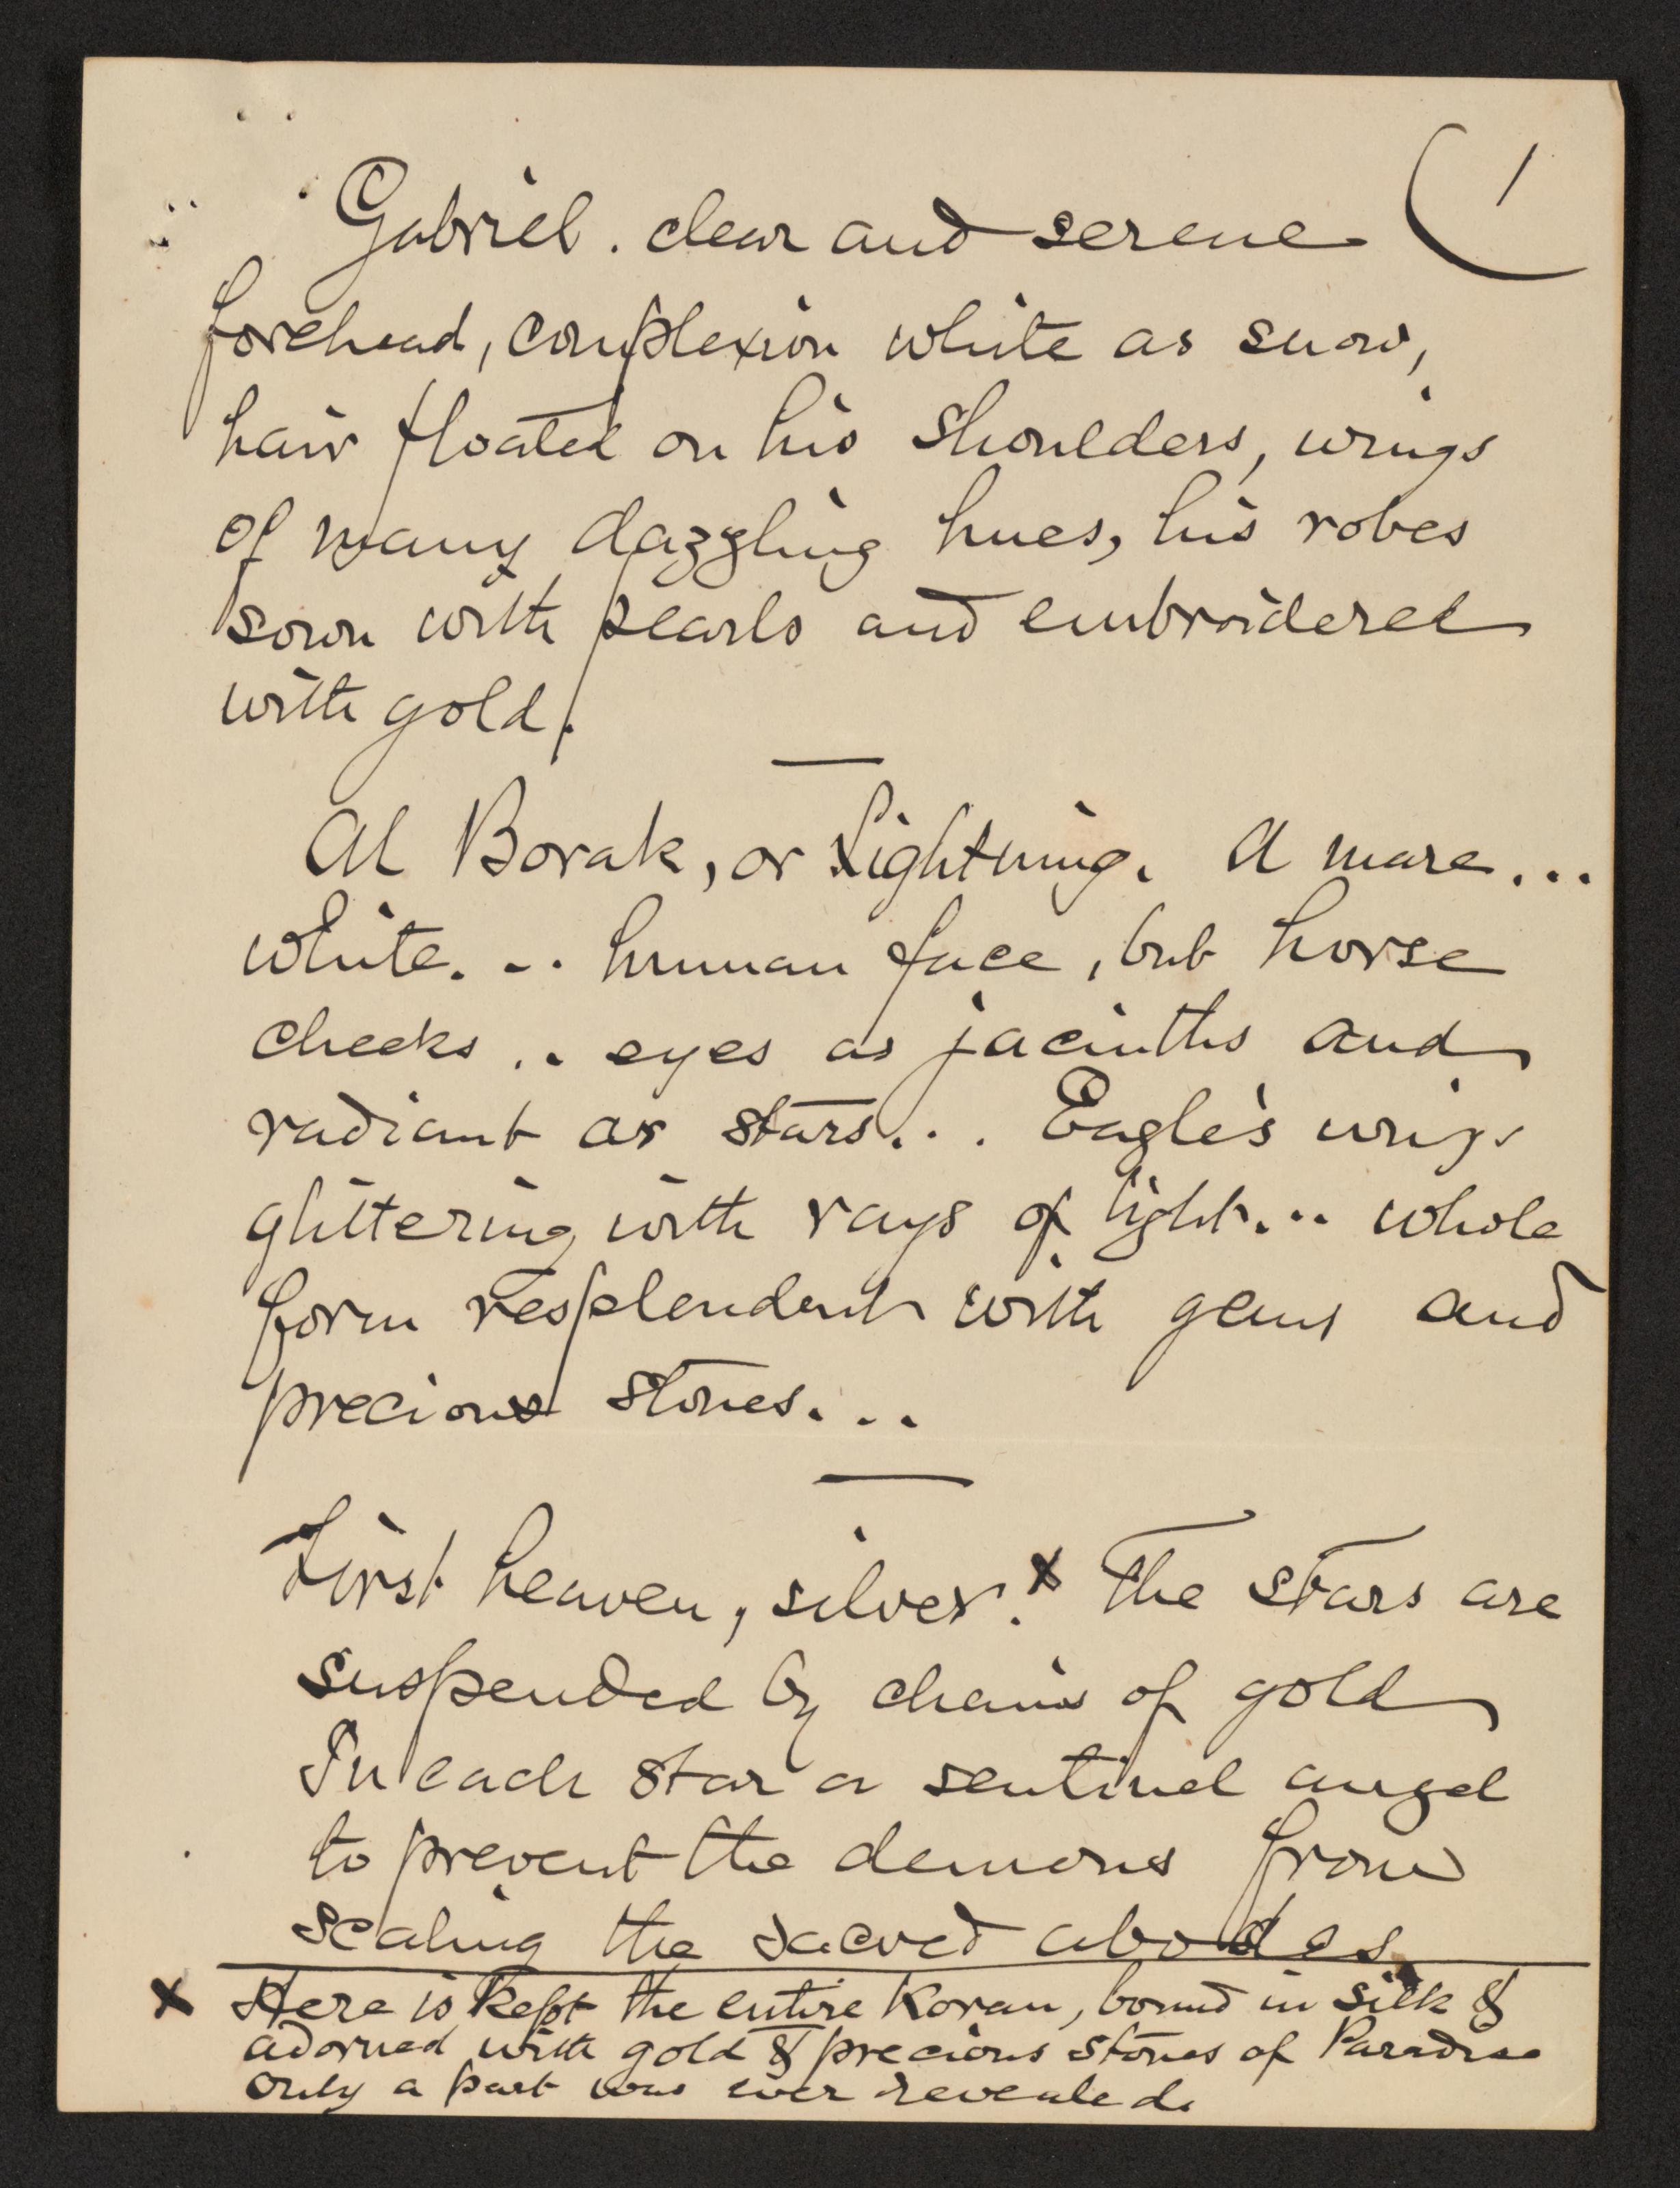 (1
Gabriel. clear and serene
forehead, complexion white as snow,
hair floated on his shoulders, wings
of many dazzling hues, his robes
sown with pearls and embroidered
with gold.
Al Borak, or Lightning. A mare...
white... human face, but horse
cheeks .. eyes as jacinths and
radiant as stars... Eagle's wings
glittering with rays of light... whole
form resplendent with gems and
precious stones...
First heaven, silver.x The stars are
suspended by chains of gold
In each star a sentinel angel
to prevent the demons from
scaling the sacred abodes
x Here is kept the entire Koran, bound in silk &
adorned with gold & precious stones of Paradise
only a part was ever revealed.